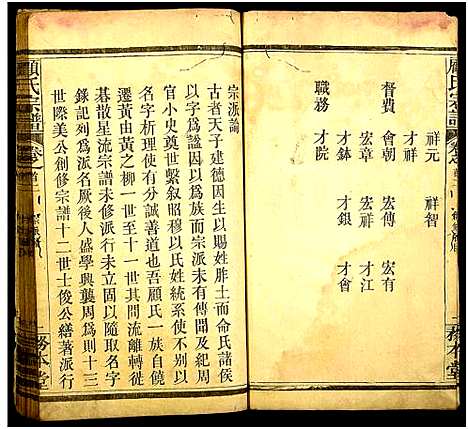 祥元　祥智
才祥
督費　會朝　宏傳　宏有
宏章　宏祥　才江
才鉢　才銀　才會
職務　才院
務本堂
顧氏宗譜
宗派諭
古者天子建德因生以賜姓胙土而命氏諸侯
以字為謚因以為族而宗派未有傳聞及紀周
官小史奠繫叙昭穆以氏姓統系使不別以
名字析理使有分誠善道也吾顧氏一族自虎
遷黃由黃之柳一世至十一世其間流離轉徙
碁散星流宗譜未修派行未立固以隨取名字
錄記列為派名厥後人盛學興龔周為則十三
世際美公創修宗譜十二世士俊公繕著派行
顧氏宗譜
卷之首
務本堂